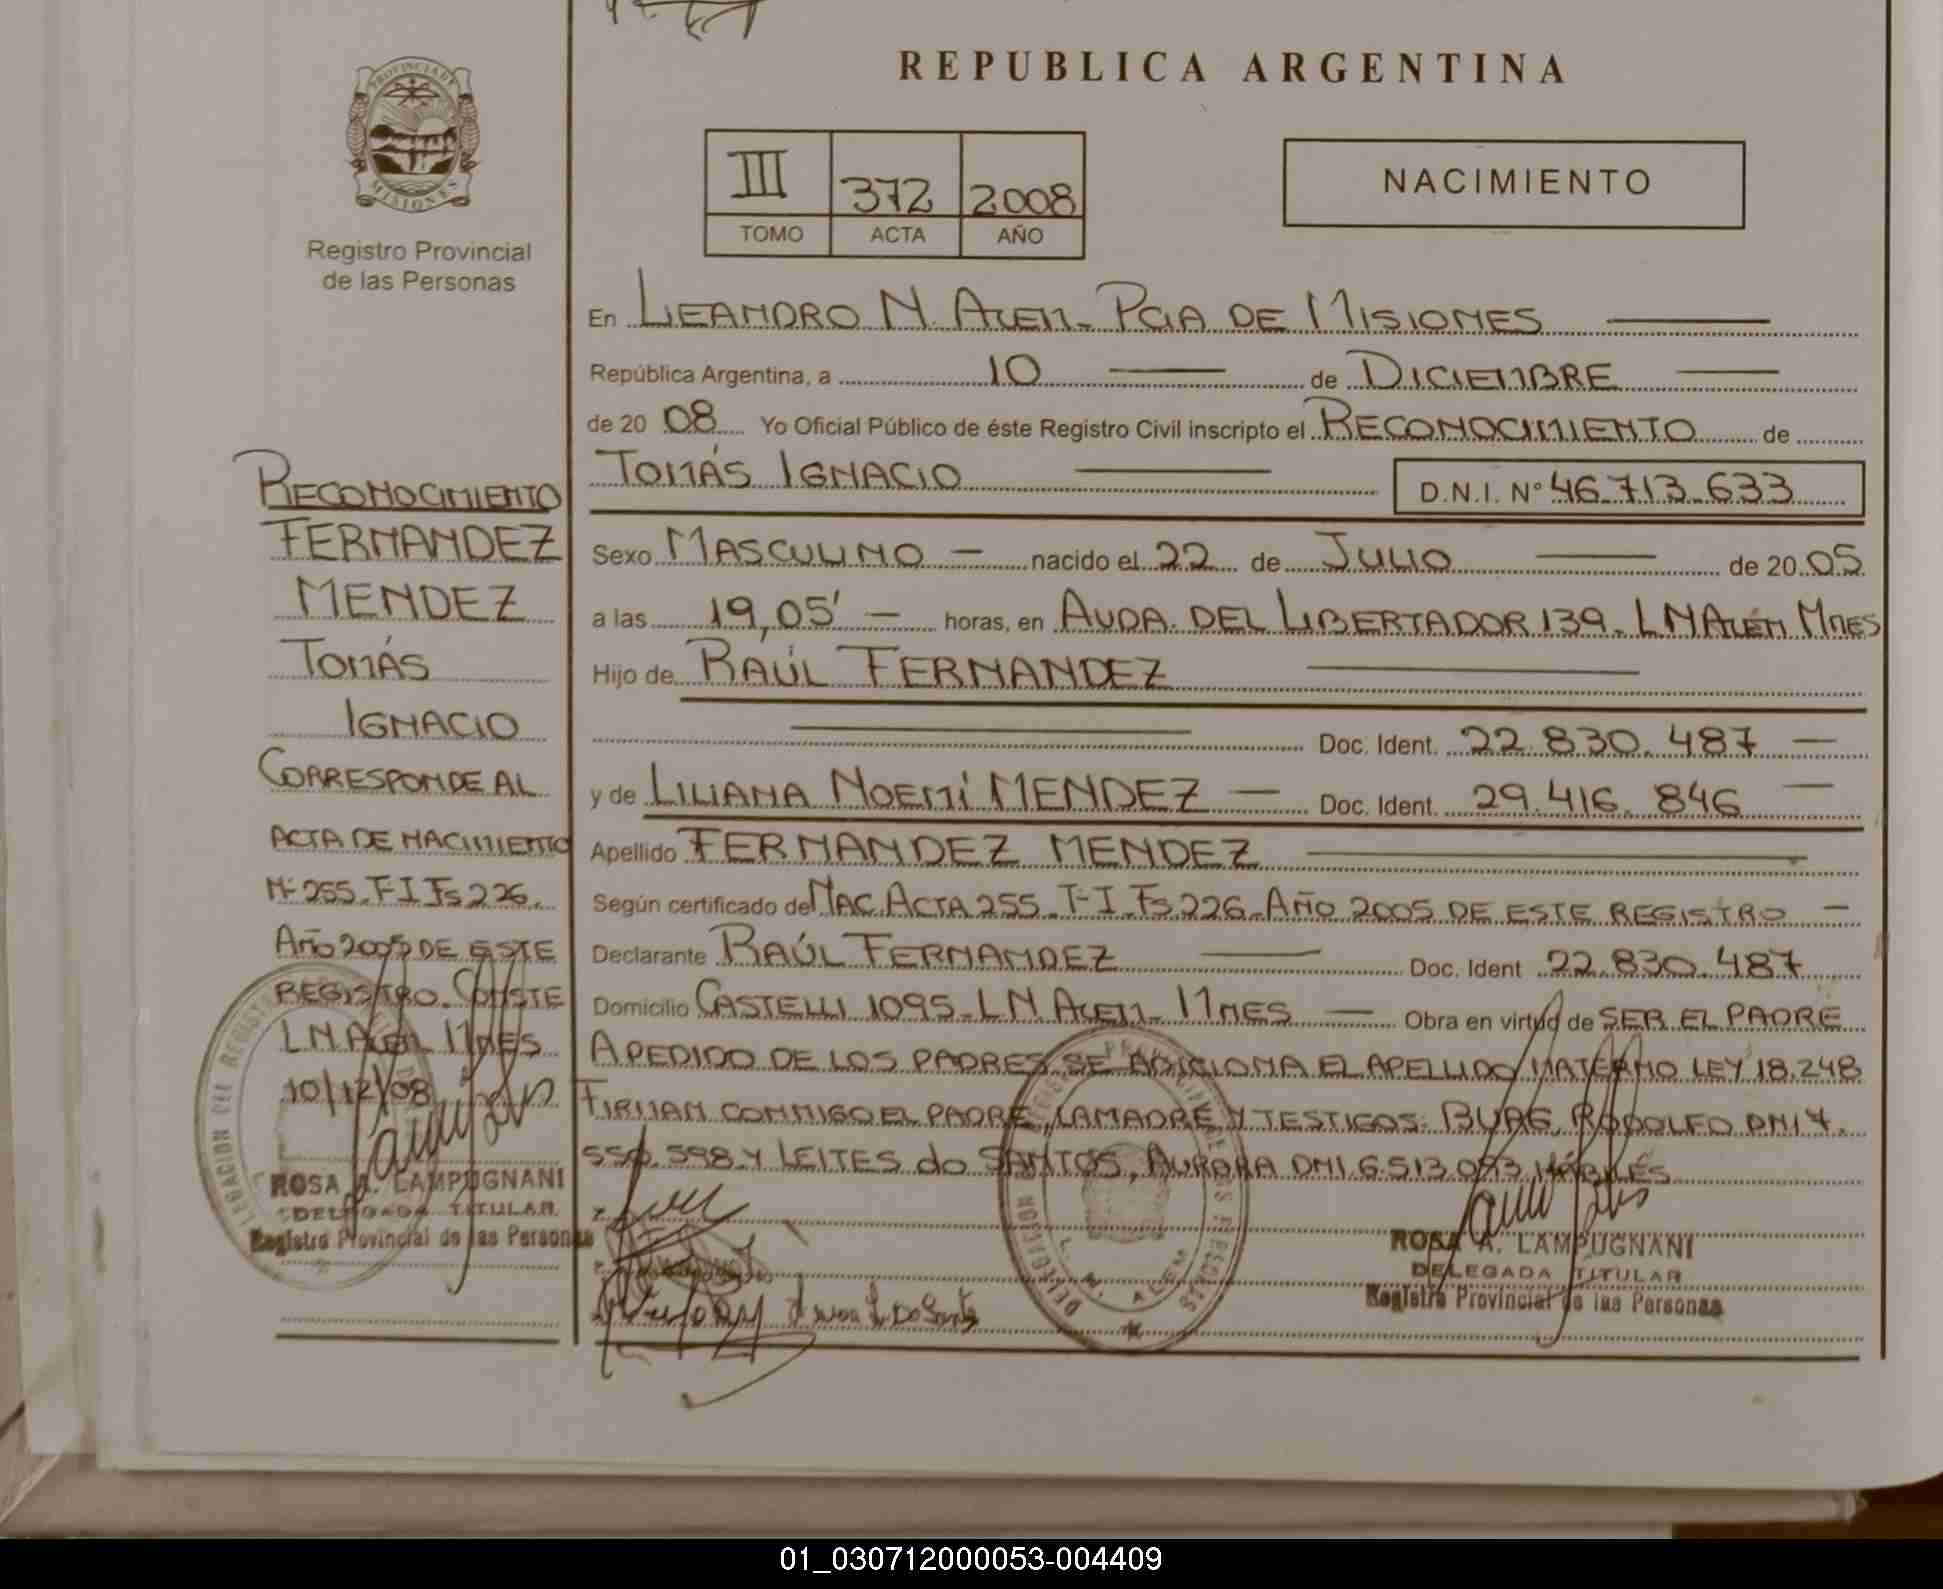 REPUBLICA ARGENTINA
PROVINCIA DE
MISIONES
Registro Provincial
de las Personas
III 372 2008
TOMO ACTA AÑO
NACIMIENTO
En LEANDRO N. ALEM - PCIA DE MISIONES
República Argentina, a 10 de DICIEMBRE
de 20 08 Yo Oficial Público de éste Registro Civil inscripto el RECONOCIMIENTO de
TOMÁS IGNACIO D.N.I. N° 46.713.633
Sexo MASCULINO — nacido el 22 de JULIO de 20 05
a las 19,05' — horas, en AVDA. DEL LIBERTADOR 139 - L N ALÉM MNES
Hijo de RAÚL FERNANDEZ
Doc. Ident. 22.830.487 —
y de LILIANA NOEMÍ MENDEZ — Doc. Ident. 29.416.846 —
Apellido FERNANDEZ MENDEZ
Según certificado de NAC. ACTA 255 - T-I - Fs 226 - AÑO 2005 DE ESTE REGISTRO —
Declarante RAÚL FERNANDEZ Doc. Ident 22.830.487
Domicilio CASTELLI 1095 - L N ALEM - MNES — Obra en virtud de SER EL PADRE
A PEDIDO DE LOS PADRES SE ADICIONA EL APELLIDO MATERNO LEY 18.248
FIRMAN CONMIGO EL PADRE, LA MADRE Y TESTIGOS: BURG, RODOLFO DNI 7.
550.598 Y LEITES do SANTOS, AURORA DNI 6.513.093 HÁBILES
ROSA A. LAMPUGNANI
DELEGADA TITULAR
Registro Provincial de las Personas
RECONOCIMIENTO
FERNANDEZ
MENDEZ
TOMÁS
IGNACIO
CORRESPONDE AL
ACTA DE NACIMIENTO
Nº 255 - T-I Fs 226.
AÑO 2005 DE ESTE
REGISTRO. CONSTE
L N ALEM MNES
10/12/08
ROSA A. LAMPUGNANI
DELEGADA TITULAR
Registro Provincial de las Personas
01_030712000053-004409